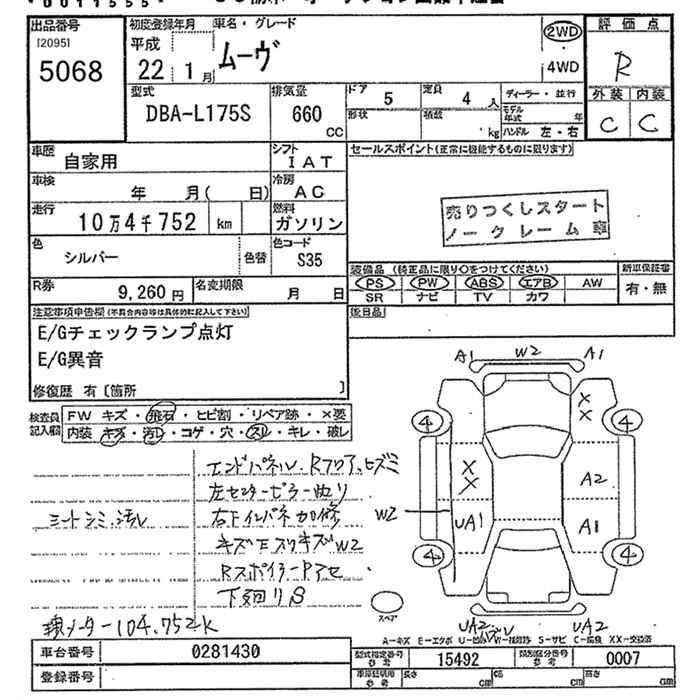 出品番号 初度登録年月 車名・グレード 評価点
[2095]
5068
平成
22年 1月
ムーヴ
2WD
4WD
R
外装 内装
C C
型式 排気量 ドア 定員 ディーラー・並行
DBA-L175S 660 CC 5 4人
形状 積載 kg
モデル年式 年
ハンドル 左・右
車歴 自家用 シフト IAT
セールスポイント(正常に機能するものに限ります)
車検 年 月( 日) 冷房 AC
走行 10万4千752 km 燃料 ガソリン
売りつくしスタート
ノークレーム車
色 シルバー 色替 色コード S35
R券 9,260円 名変期限 月 日
装備品 (純正品に限り○をつけてください) 新車保証書
PS PW ABS エアB AW 有・無
SR ナビ TV カワ
後日品
注意事項申告欄(不具合内容等は具体的に記入して下さい)
E/Gチェックランプ点灯
E/G異音
修復歴 有〔箇所 〕
検査員記入欄
FW キズ・飛石・ヒビ割・リペア跡・×要
内装・キズ・汚レ・コゲ・穴・スレ・キレ・破レ
エンドパネル、Rフロア、ヒズミ
左センターピラー曲り
シートシミ、汚レ 右下インパネ加修
キズEスリキズW2
RスポイラーPアセ
下廻りS
現メーター104,752K
A1 W2 A1
4 × × 4
× × A2
W2 UA1 A1
4 4
スペア
UA2 UA2
A=キズ E=エクボ S=サビ XX=交換済
車台番号 0281430
登録番号
型式指定番号 参考 15492 類別区分番号 参考 0007
長さ cm 幅 cm 高さ cm